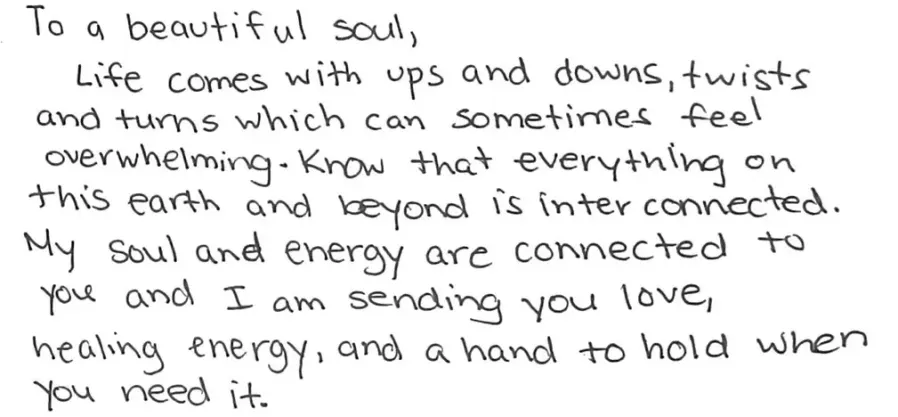 To a beautiful soul,
Life comes with ups and downs, twists
and turns which can sometimes feel
overwhelming. Know that everything on
this earth and beyond is inter connected.
My soul and energy are connected to
you and I am sending you love,
healing energy, and a hand to hold when
you need it.